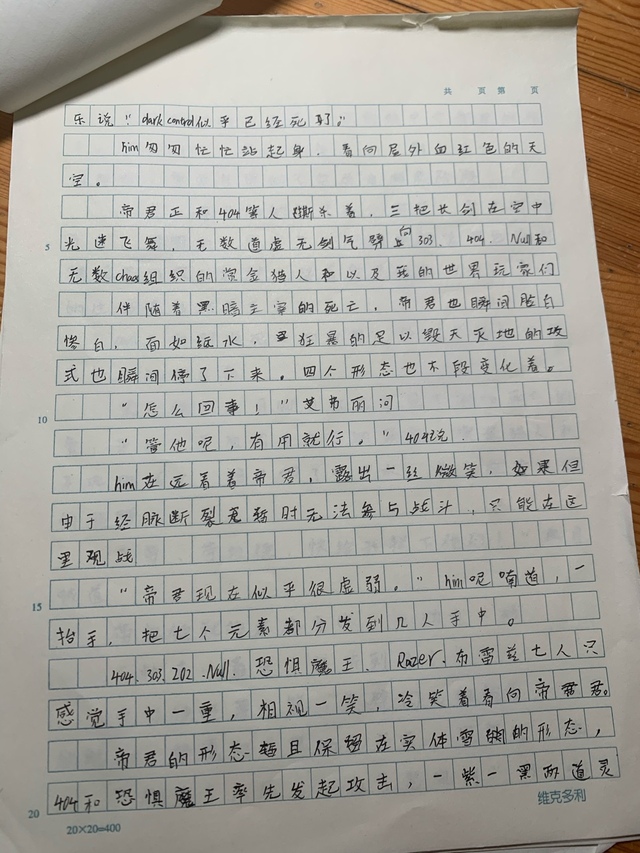 共 页 第 页
乐说“dark control似乎已经死了。”
him匆匆忙忙站起身，看向屋外血红色的天
空。
帝君正和404等人厮杀着，三把长剑在空中
5
光速飞舞，无数道虚无剑气劈向303、404、Null和
无数chaos组织的赏金猎人和以及我的世界玩家们
伴随着黑暗主宰的死亡，帝君也瞬间脸白
惨白，面如纸水，狂暴的足以毁天灭地的攻
式也瞬间停了下来。四个形态也不段变化着。
10
“怎么回事！”艾韦丽问
“管他呢，有用就行。”404说
him在远看着帝君，露出一丝微笑，如果但
由于经脉断裂暂时无法参与战斗，只能在这
里观战
15
“帝君现在似乎很虚弱。”him呢喃道，一
抬手，把七个元素都分发到几人手中。
404.303.202.Null.恐惧魔王.Razer.布雷兹七人只
感觉手中一重，相视一笑，冷笑着看向帝君君。
帝君的形态暂且保留在实体雪的形态，
20
404和恐惧魔王率先发起攻击，一紫一黑两道灵
20×20=400
维克多利